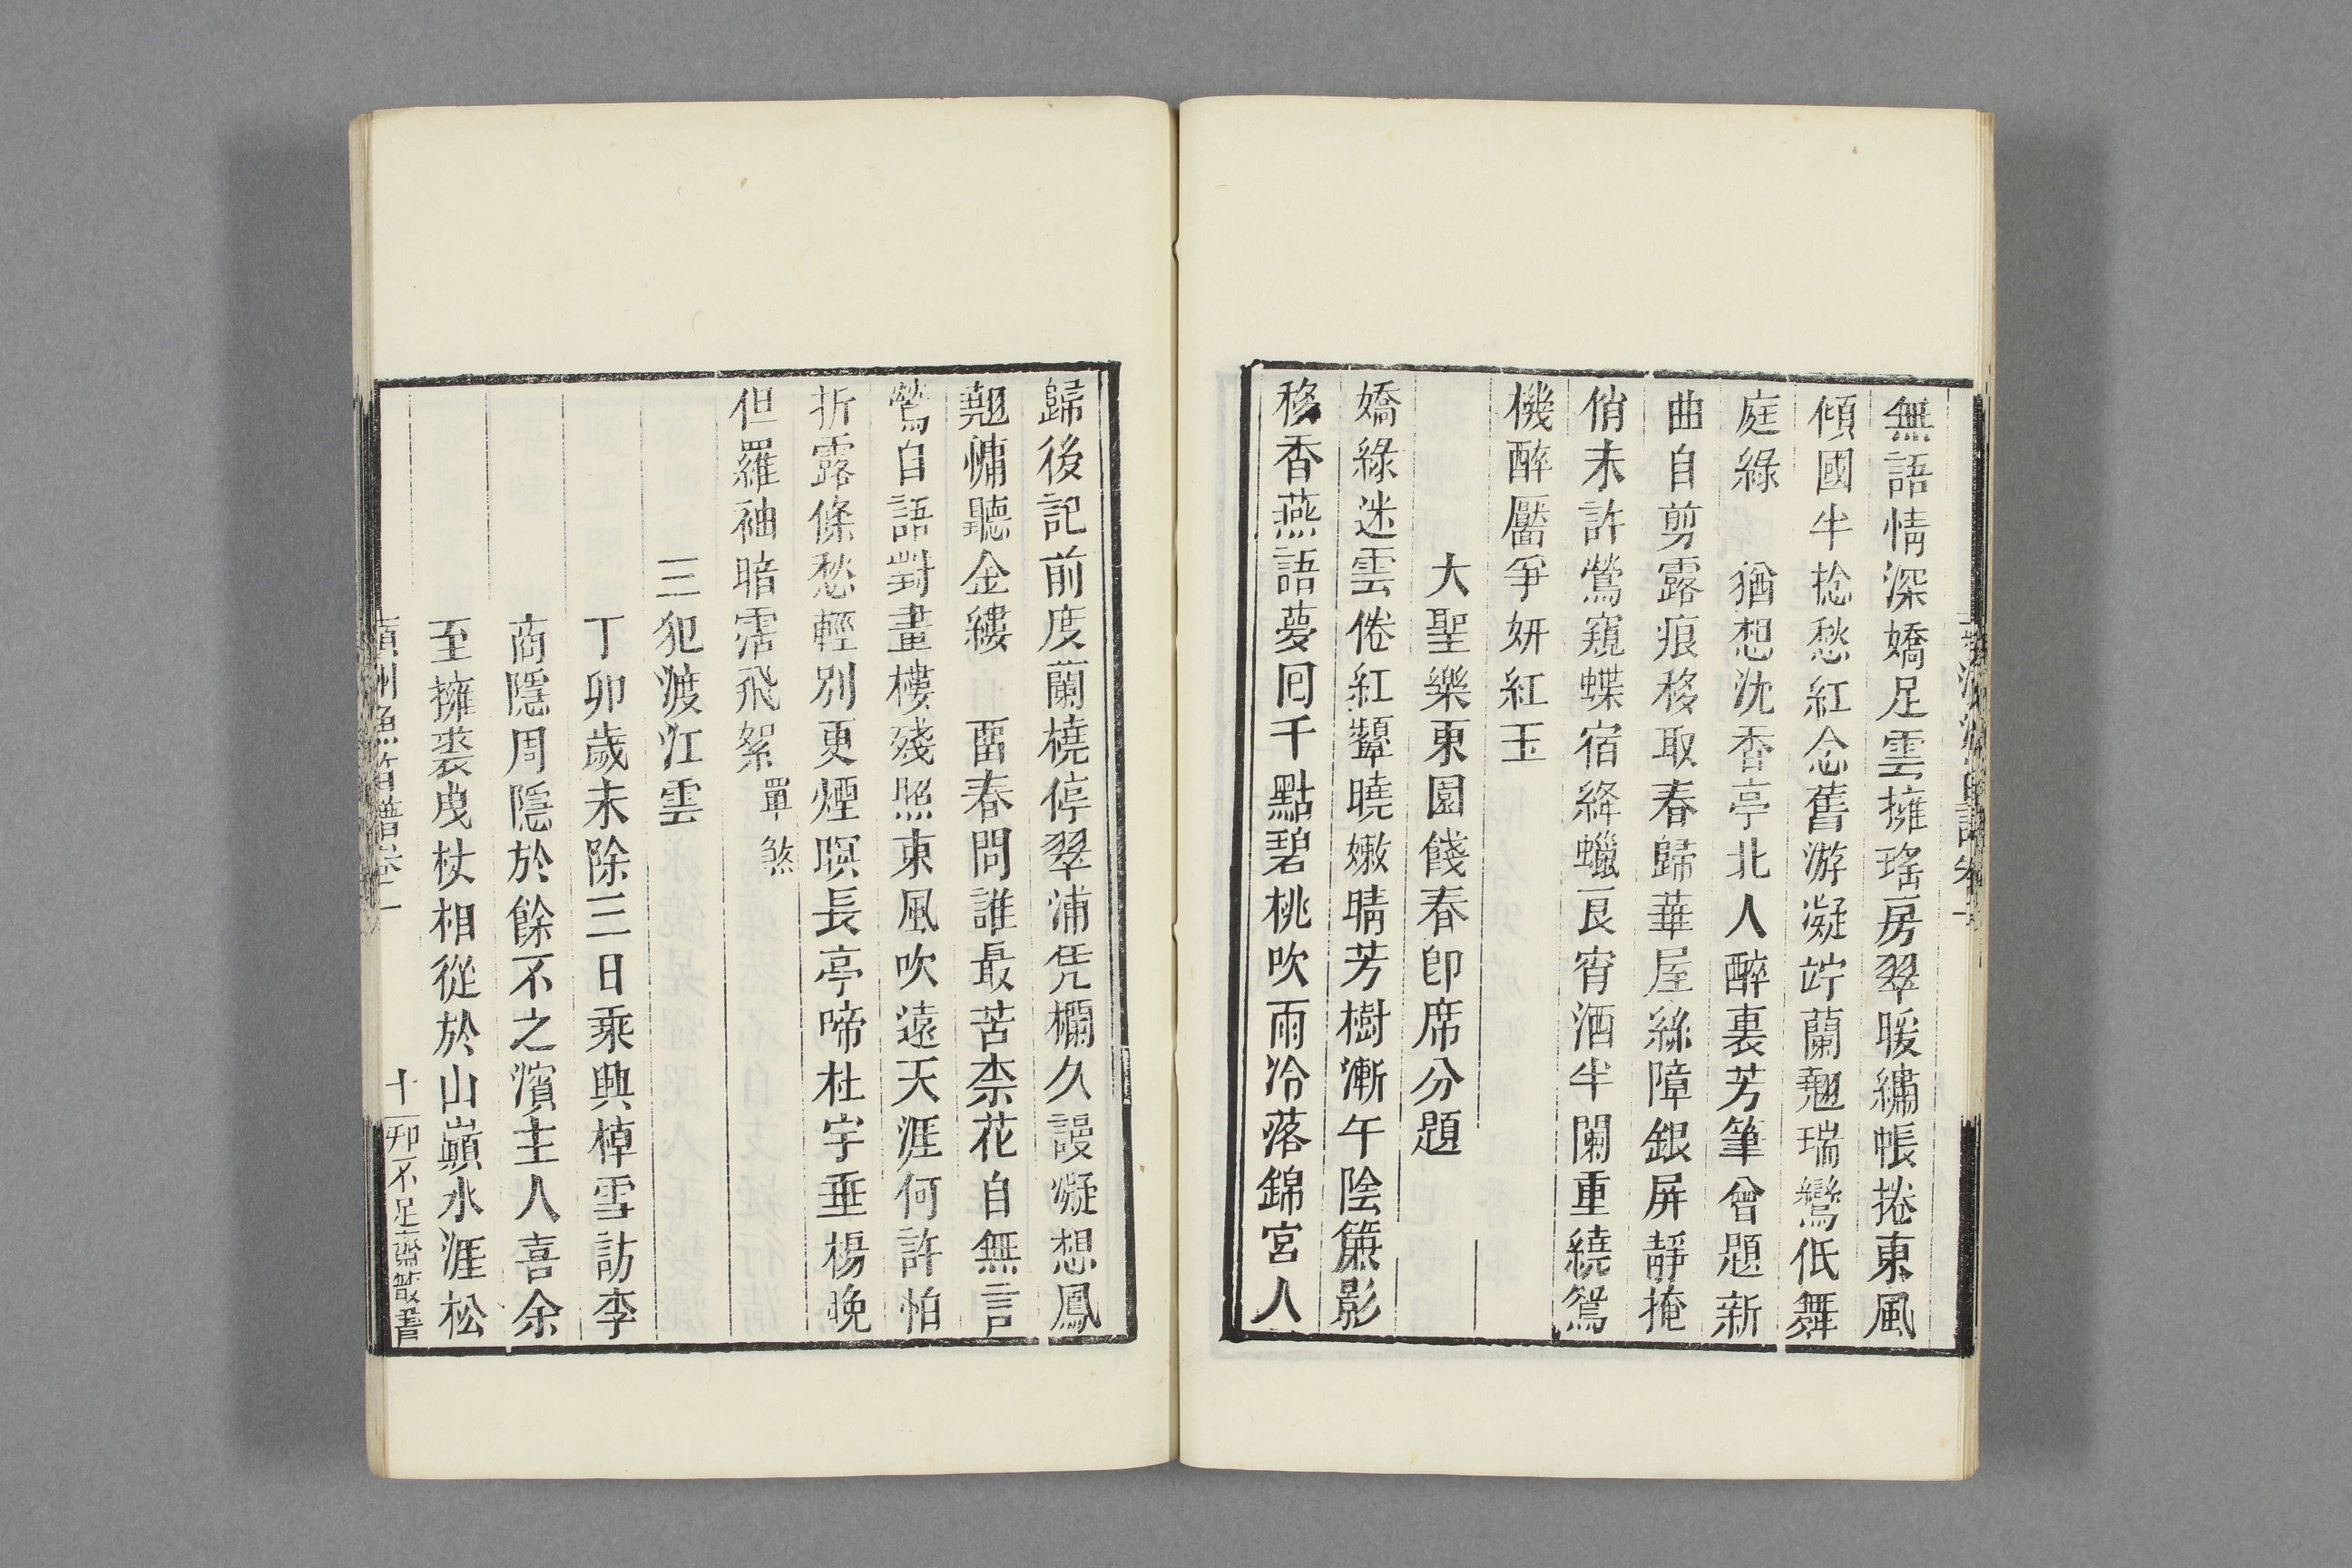 無語情深嬌足雲擁瑤房翠暖繡帳捲東風
傾國半捻愁紅念舊游凝竚蘭翹瑞鸞低舞
庭綠　猶想沈香亭北人醉裏芳筆曾題新
曲自剪露痕移取春歸華屋絲障銀屏靜掩
俏未許鶯窺蝶宿絳蠟良宵酒半闌重繞鴛
機醉靨爭妍紅玉
大聖樂東園餞春卽席分題
嬌綠迷雲倦紅顰曉嫩晴芳樹漸午陰簾影
移香燕語夢回千點碧桃吹雨冷落錦宮人
歸後記前度蘭橈停翠浦凭欄久謾凝想鳳
翹慵聽金縷　畱春問誰最苦柰花自無言
鶯自語對畫樓殘照東風吹遠天涯何許怕
折露條愁輕別更煙暝長亭啼杜宇垂楊晚
但羅袖暗霑飛絮單煞
三犯渡江雲
丁卯歲未除三日乘興棹雪訪李
商隱周隱於餘不之濱主人喜余
至擁裘曵杖相從於山巓水涯松
蘋洲漁笛譜卷一
十一知不足齋叢書